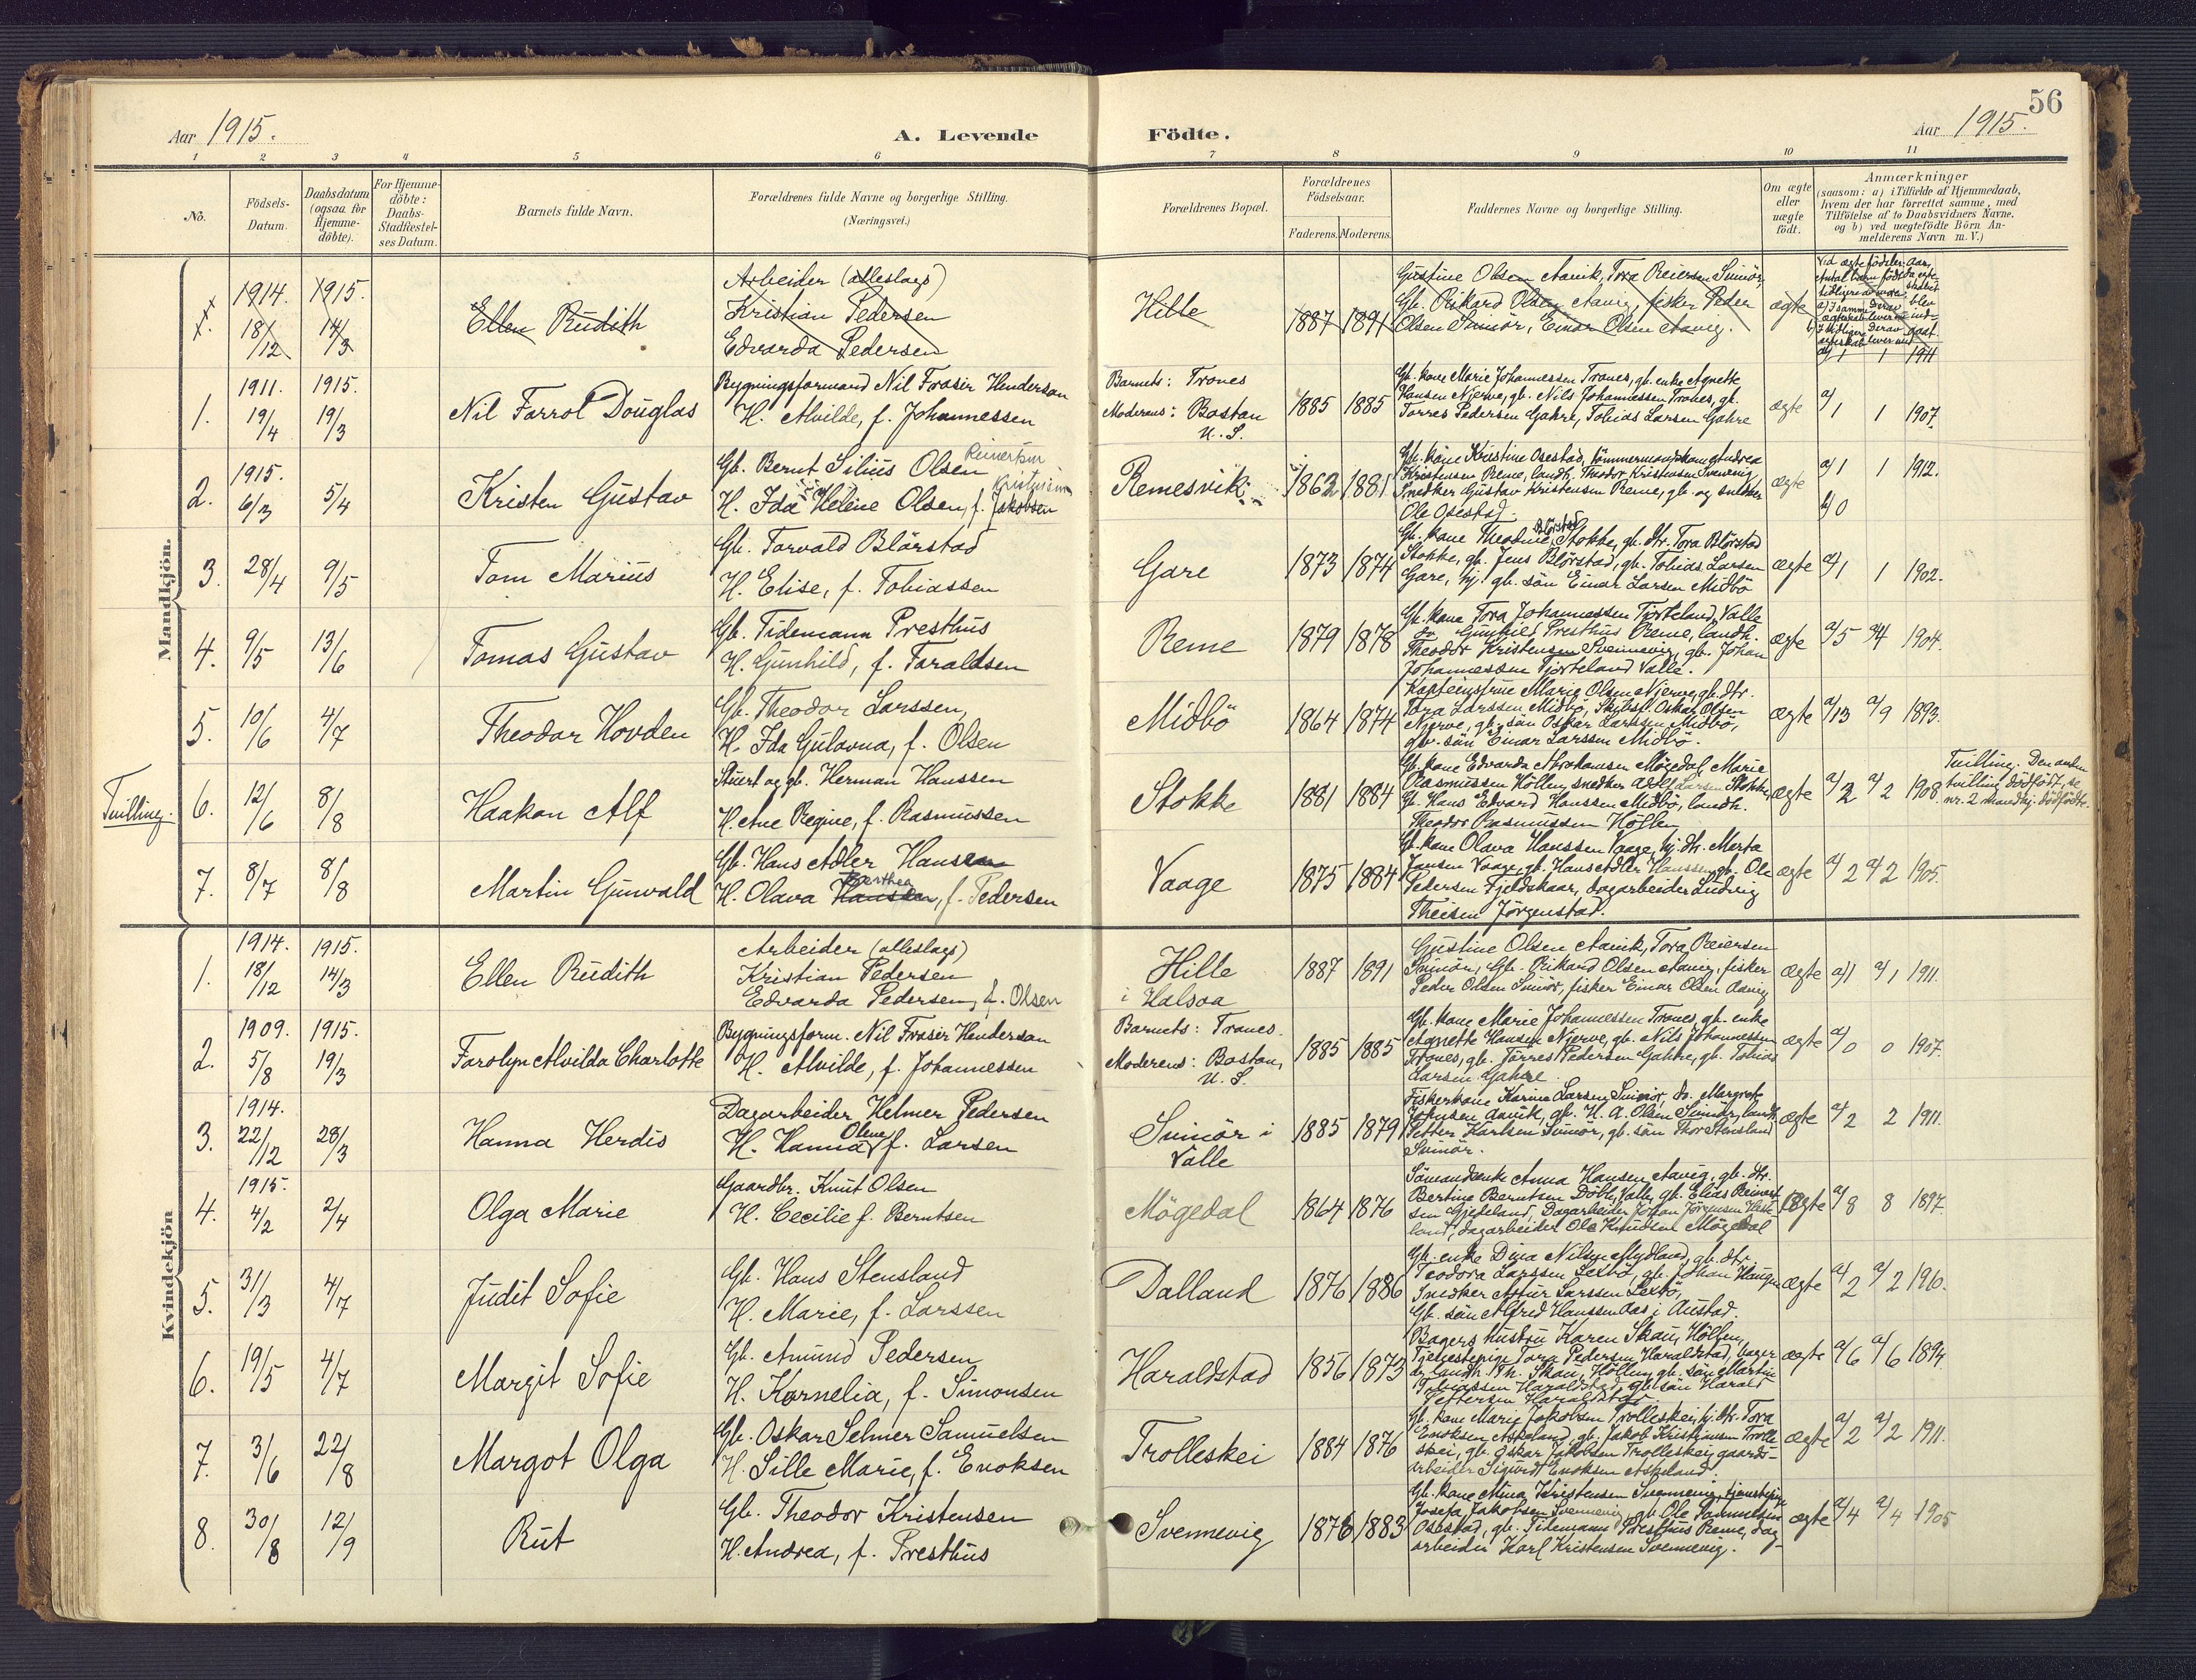 56
Aar 1915.
A. Levende
Födte.
Aar 1915.
1 2 3 4 5 6 7 8 9 10 11
No.
Födsels-
Datum.
Daabsdatum
(ogsaa for
Hjemme-
döbte).
For Hjemme-
döbte:
Daabs-
Stadfæstel-
ses Datum.
Barnets fulde Navn.
Forældrenes fulde Navne og borgerlige Stilling.
(Næringsvei.)
Forældrenes Bopæl.
Forældrenes
Födselsaar.
Faderens. Moderens.
Faddernes Navne og borgerlige Stilling.
Om ægte
eller
uægte
födt.
Anmærkninger
(saasom: a) i Tilfælde af Hjemmedaab,
hvem der har forrettet samme, med
Tilföielse af to Daabsvidners Navne,
og b) ved uægtefödte Börn An-
melderens Navn m. V.)
Mandkjön.
1914. 1915.
1. 18/12 14/3
Ellen Rudith
Arbeider (alleslags)
Kristian Pedersen
Edvarda Pedersen
Hille
1887 1891
Gustine Olsen Aavik, Tora Reiersen Svinör,
Gb. Rikard Olsen Aavig, fisker Peder
Olsen Svinör, Einar Olsen Aavig.
ægte
a/ 1 1 1911
1911. 1915.
1. 19/4 19/3
Nil Farrol Douglas
Bygningsformand Nil Frasir Henderson
H. Alvilde, f. Johannessen
Barnets: Tranes
Moderens: Bostan
U. S.
1885 1885
Gb. kone Marie Johannessen Tranes, gb. enke Agnette
Hansen Njerve, gb. Nils Johannessen Tranes, gb.
Tarres Pedersen Gahre, Tobias Larsen Gahre
ægte
a/1 1 1907.
1915.
2. 6/3 5/4
Kristen Gustav
Gb. Bernt Silius Olsen Reinertsen
H. Ida Heline Olsen, f. Jakobsen
Remesvik
1862 1881
Gb. kone Kristine Osestad, tömmermandskone Andrea
Kristensen Reme, landh. Theodor Kristensen Svennevig,
Snedker Gustav Kristensen Reme, gb. og snedker
Ole Osestad.
ægte
a/1 1 1912.
b/0
3. 28/4 9/5
Tom Marius
Gb. Torvald Blörstad
H. Elise, f. Tobiassen
Gare
1873 1874
Gb. kone Theodine Blörstad Stokke, gb. dtr. Tora Blörstad
Stokke, gb. Jens Blörstad, gb. Tobias Larsen
Gare, hj. gb. sön Einar Larsen Midbö
ægte
a/1 1 1902.
4. 9/5 13/6
Tomas Gustav
Gb. Tidemann Presthus
H. Gunhild, f. Taraldsen
Reme
1879 1878
Gb. kone Tora Johannessen Tjorteland, Valle
Gunhild Presthus Reme, landh.
Theodor Kristensen Svennevig, gb. Johan
Johannessen Tjorteland Valle.
ægte
a/5 a/4 1904.
5. 10/6 4/7
Theodor Hovden
Gb. Theodor Larssen,
H. Ida Gulovna, f. Olsen
Midbö
1864 1874
Kapteinsfrue Marie Olsen Njerve, gb. dtr.
Tora Larssen Midbö, Skibsf. Oskar Olsen
Njerve, gb. sön Oskar Larssen Midbö,
gb. sön Einar Larssen Midbö.
ægte
a/13 a/9 1893.
Tvilling.
6. 12/6 8/8
Haakon Alf
Stuert og gb. Herman Hanssen
H. Ane Regine, f. Rasmussen
Stokke
1881 1884
Gb. kone Edvarda Abrahamsen Mögedal, Marie
Rasmussen Höllen, snedker Adolf Larsen Stokke,
Gb. Hans Edvard Hanssen Midbö, landh.
Theodor Rasmussen Höllen
ægte
a/2 a/2 1908.
Tvilling. Den anden
tvilling dödfödt, se
nr. 2 mandkj. dödfödte.
7. 8/7 8/8
Martin Gunvald
Gb. Hans Adler Hansen
H. Olava Hanssen Berthea, f. Pedersen
Vaage
1875 1884
Gb. kone Olava Hanssen Vaage, hj. dtr. Marta
Jansen Vaage, gb. Hans Adler Hanssen, gb. Ole
Pedersen Fjeldskaar, dagarbeider Ludvig
Theisen Jörgenstad.
ægte
a/2 a/2 1905.
Kvindekjön
1914. 1915.
1. 18/12 14/3
Ellen Rudith
Arbeider (alleslags)
Kristian Pedersen
Edvarda Pedersen, f. Olsen
Hille
i Halsaa
1887 1891
Gustine Olsen Aavik, Tora Reiersen
Svinör, Gb. Rikard Olsen Aavig, fisker
Peder Olsen Svinör, fisker Einar Olsen Aavig
ægte
a/1 a/1 1911.
1909. 1915.
2. 5/8 19/3
Farolyn Alvilda Charlotte
Bygningsform. Nil Fraser Henderson
H. Alvilde, f. Johannessen
Barnets: Tranes.
Moderens: Bostan,
U. S.
1885 1885
Gb. kone Marie Johannessen Tranes, gb. enke
Agnette Hansen Njerve, gb. Nils Johannessen
Tranes, gb. Tarres Pedersen Gahre, gb. Tobias
Larsen Gahre.
ægte
a/0 0 1907.
1914.
3. 22/12 28/3
Hanna Herdis
Dagarbeider Helmer Pedersen
H. Hanna Oline f. Larsen
Svinör i
Valle
1885 1879
Fiskerkone Karine Larsen Svinör, do. Margrete
Johnsen Aavik, gb. H. A. Olsen Svinör, landh.
Petter Karlsen Svinör, gb. sön Thor Stensland
Svinör.
ægte
a/2 2 1911.
1915.
4. 4/2 2/4
Olga Marie
Gaardbr. Knut Olsen
H. Cecilie f. Berntsen
Mögedal
1864 1876
Sömandsenke Anna Hansen Aavig, gb. dtr.
Bertine Berntsen Döble, Valle, gb. Elias Reinert-
sen Gjedeland, Dagarbeider Johan Jörgensen
land, dagarbeider Ole Knudsen Mögedal
ægte
a/8 8 1897.
5. 31/3 4/7
Judit Sofie
Gb. Hans Stensland
H. Marie, f. Larssen
Dalland
1876 1886
Gb. enke Dina Nilsen Mydland, gb. dtr.
Teodora Larssen Lexbö, gb. Johan Haugen
Snedker Artur Larssen Lexbö,
Gb. sön Alfred Hanssen Aas i Austad.
ægte
a/2 a/2 1910.
6. 19/5 4/7
Margit Sofie
Gb. Amund Pedersen
H. Kornelia, f. Simonsen
Haraldstad
1856 1873
Bagers hustru Karen Skau, Höllen,
Tjenestepige Tora Pedersen Haraldstad, bager
og landh. Th. Skau, Höllen, gb. sön Martin
Tobiassen Haraldstad, gb. sön Harald
Pettersen Haraldstad
ægte
a/6 a/6 1894.
7. 3/6 22/8
Margot Olga
Gb. Oskar Selmer Samuelsen
H. Sille Marie, f. Enoksen
Trolleskei
1884 1876
Gb. kone Marie Jakobsen Trolleskei, hj. dtr. Tora
Enoksen Askeland, gb. Jakob Kristensen Trolle
skei, gb. Oskar Jakobsen Trolleskei, gaards-
arbeider Sigurd Enoksen Askeland.
ægte
a/2 a/2 1911.
8. 30/8 12/9
Rut
Gb. Theodor Kristensen
H. Andrea, f. Presthus
Svennevig
1876 1883
Gb. kone Mina Kristensen Svennevig, tjenestepige
Josefa Jakobsen Svennevig, gb. Ole Samuelsen
Osestad, gb. Tidemann Presthus Reme, dag
arbeider Karl Kristensen Svennevig.
ægte
a/4 a/4 1905